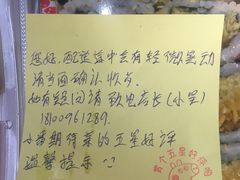 您好,配送途中会有轻微晃动
请当面确认收货
如有疑问请致电店长(小星)
18100961289.
小暮期待菜的五星好评
温馨提示
有个五星好评的